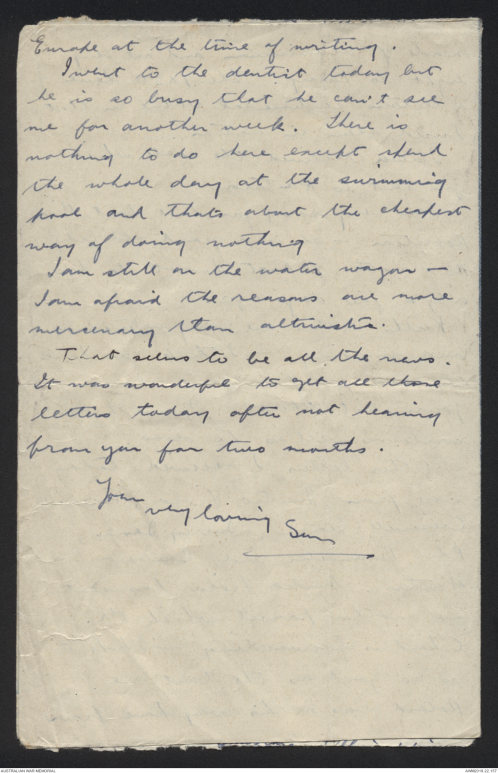 Europe at the time of writing.
I went to the dentist today but
he is so busy that he can't see
me for another week. There is
nothing to do here except spend
the whole day at the swimming
pool and thats about the cheapest
way of doing nothing
I am still on the water wagon —
I am afraid the reasons are more
mercenary than altruistic.
That seems to be all the news.
It was wonderful to get all those
letters today after not hearing
from you for two months.
Your
very loving
AUSTRALIAN WAR MEMORIAL